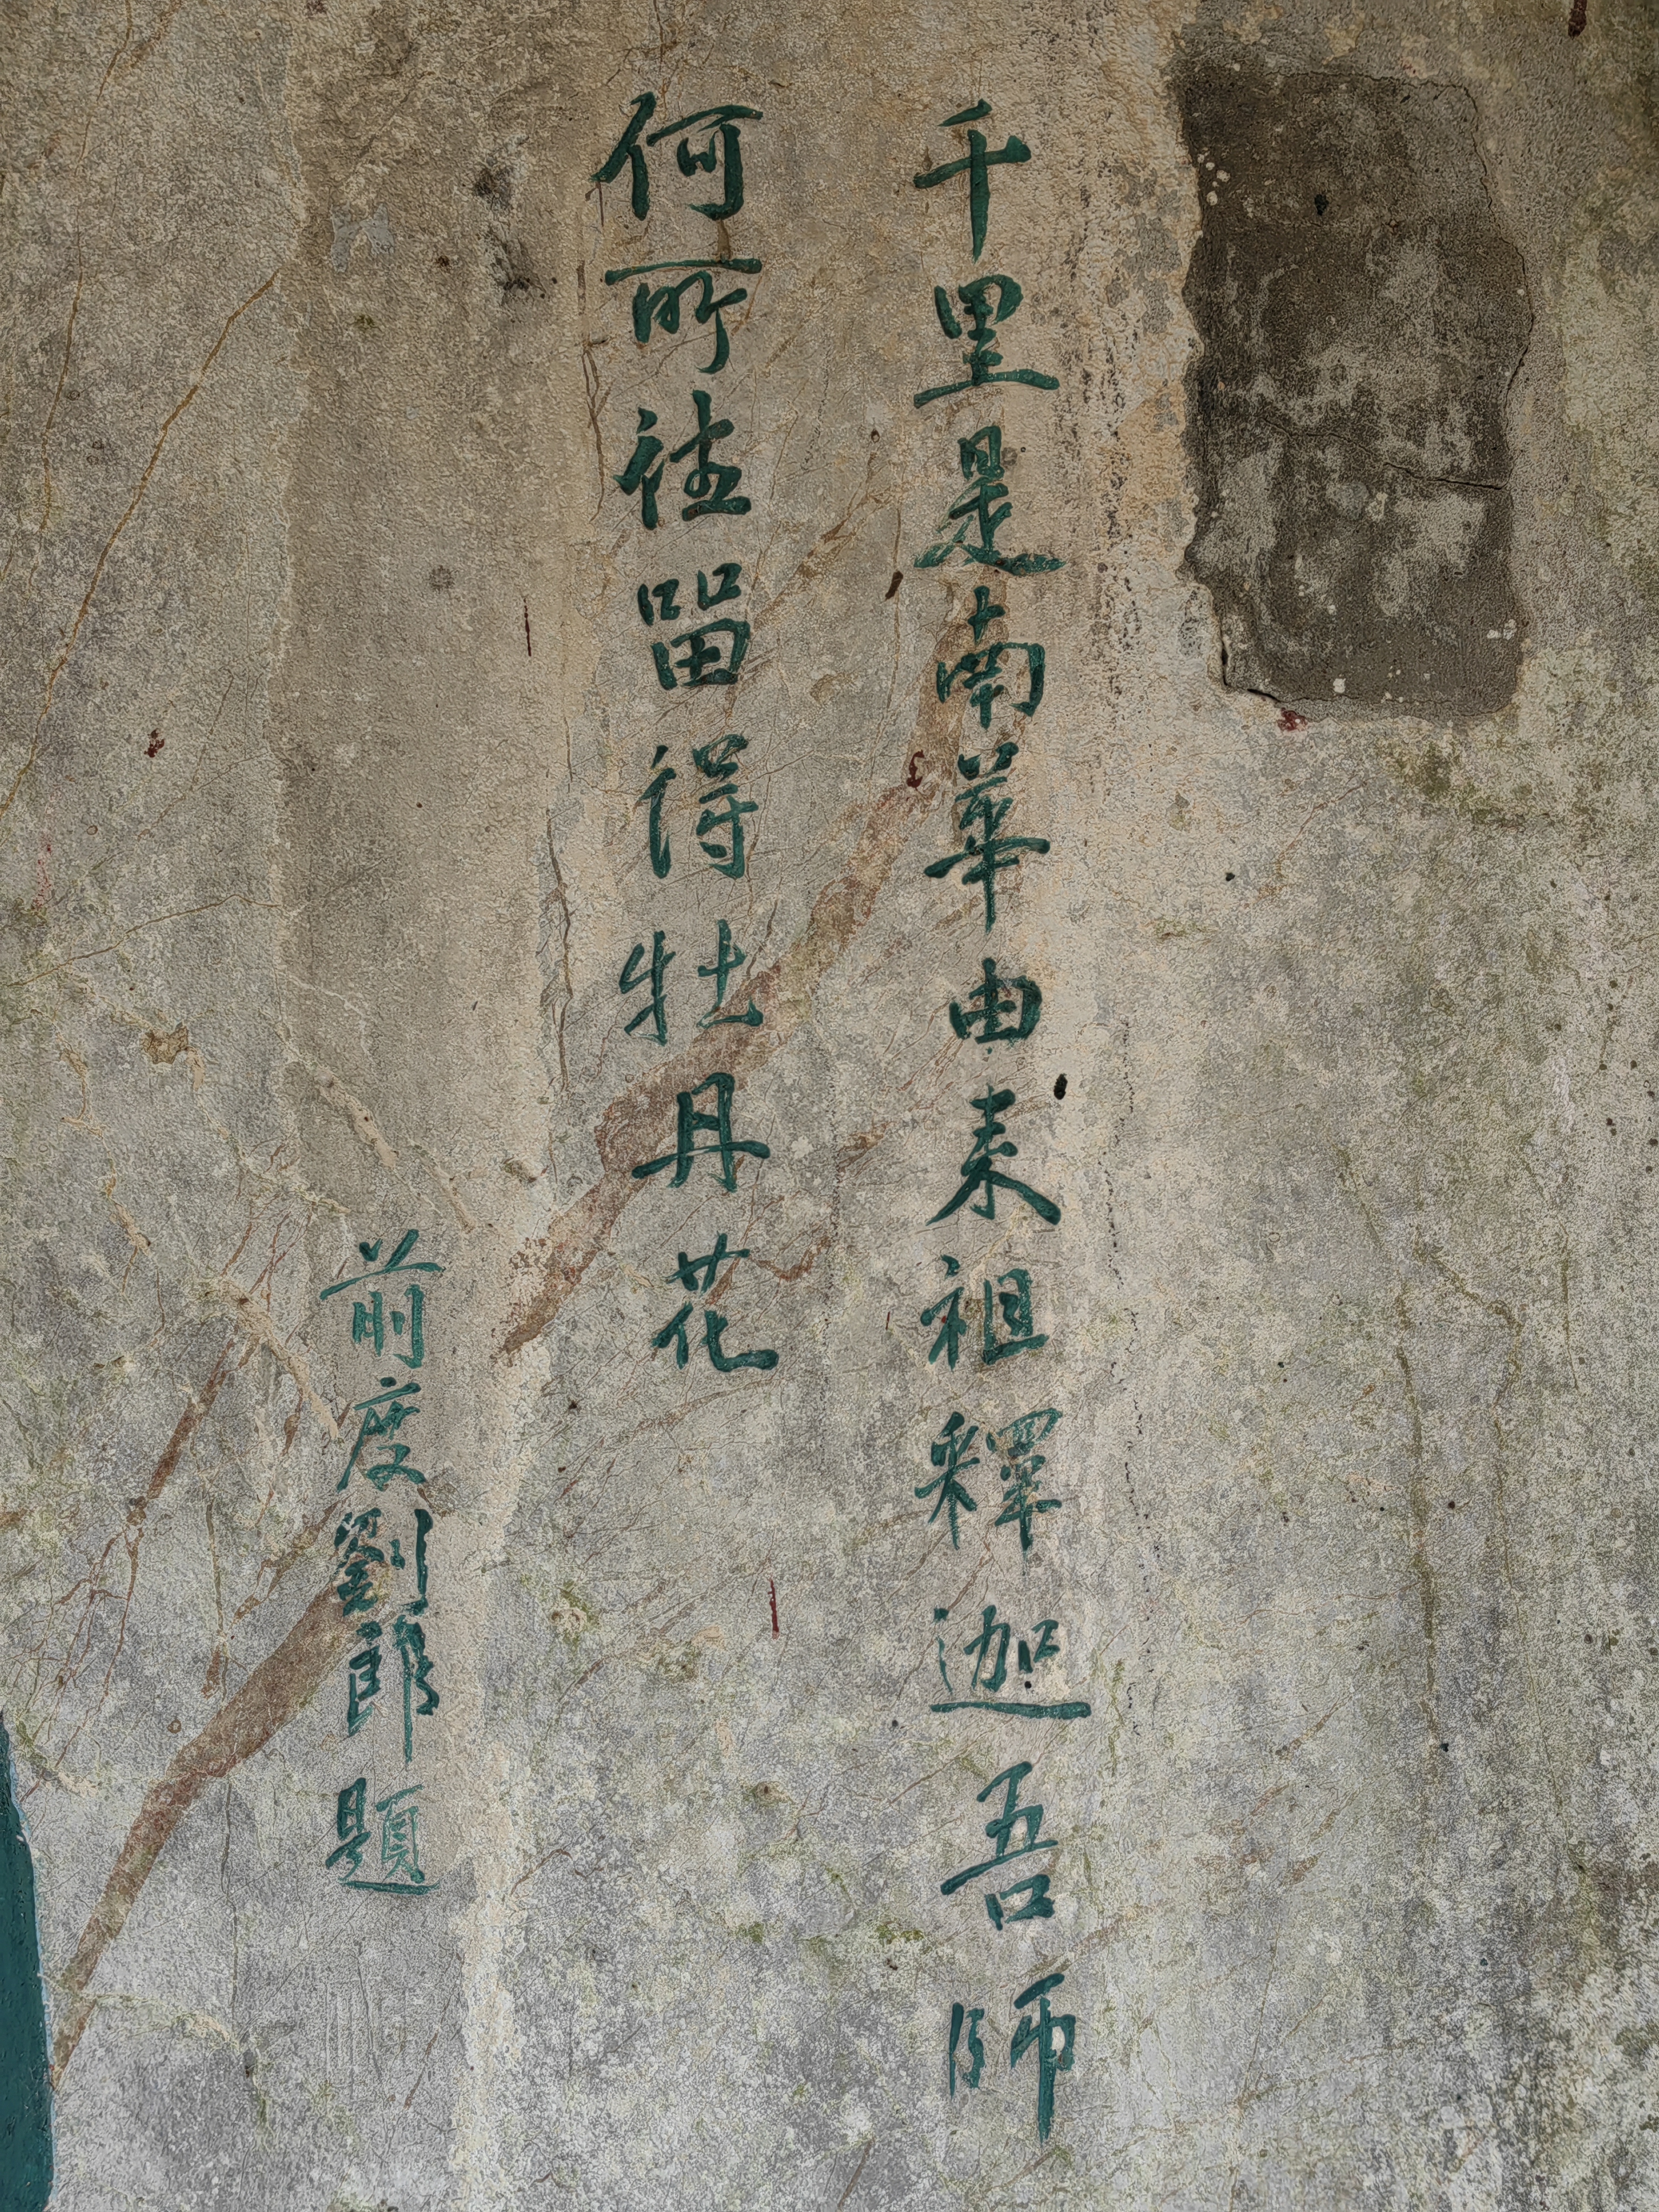 千里是南華由来祖釋迦吾師
何所往留得牡丹花
前度劉郎題